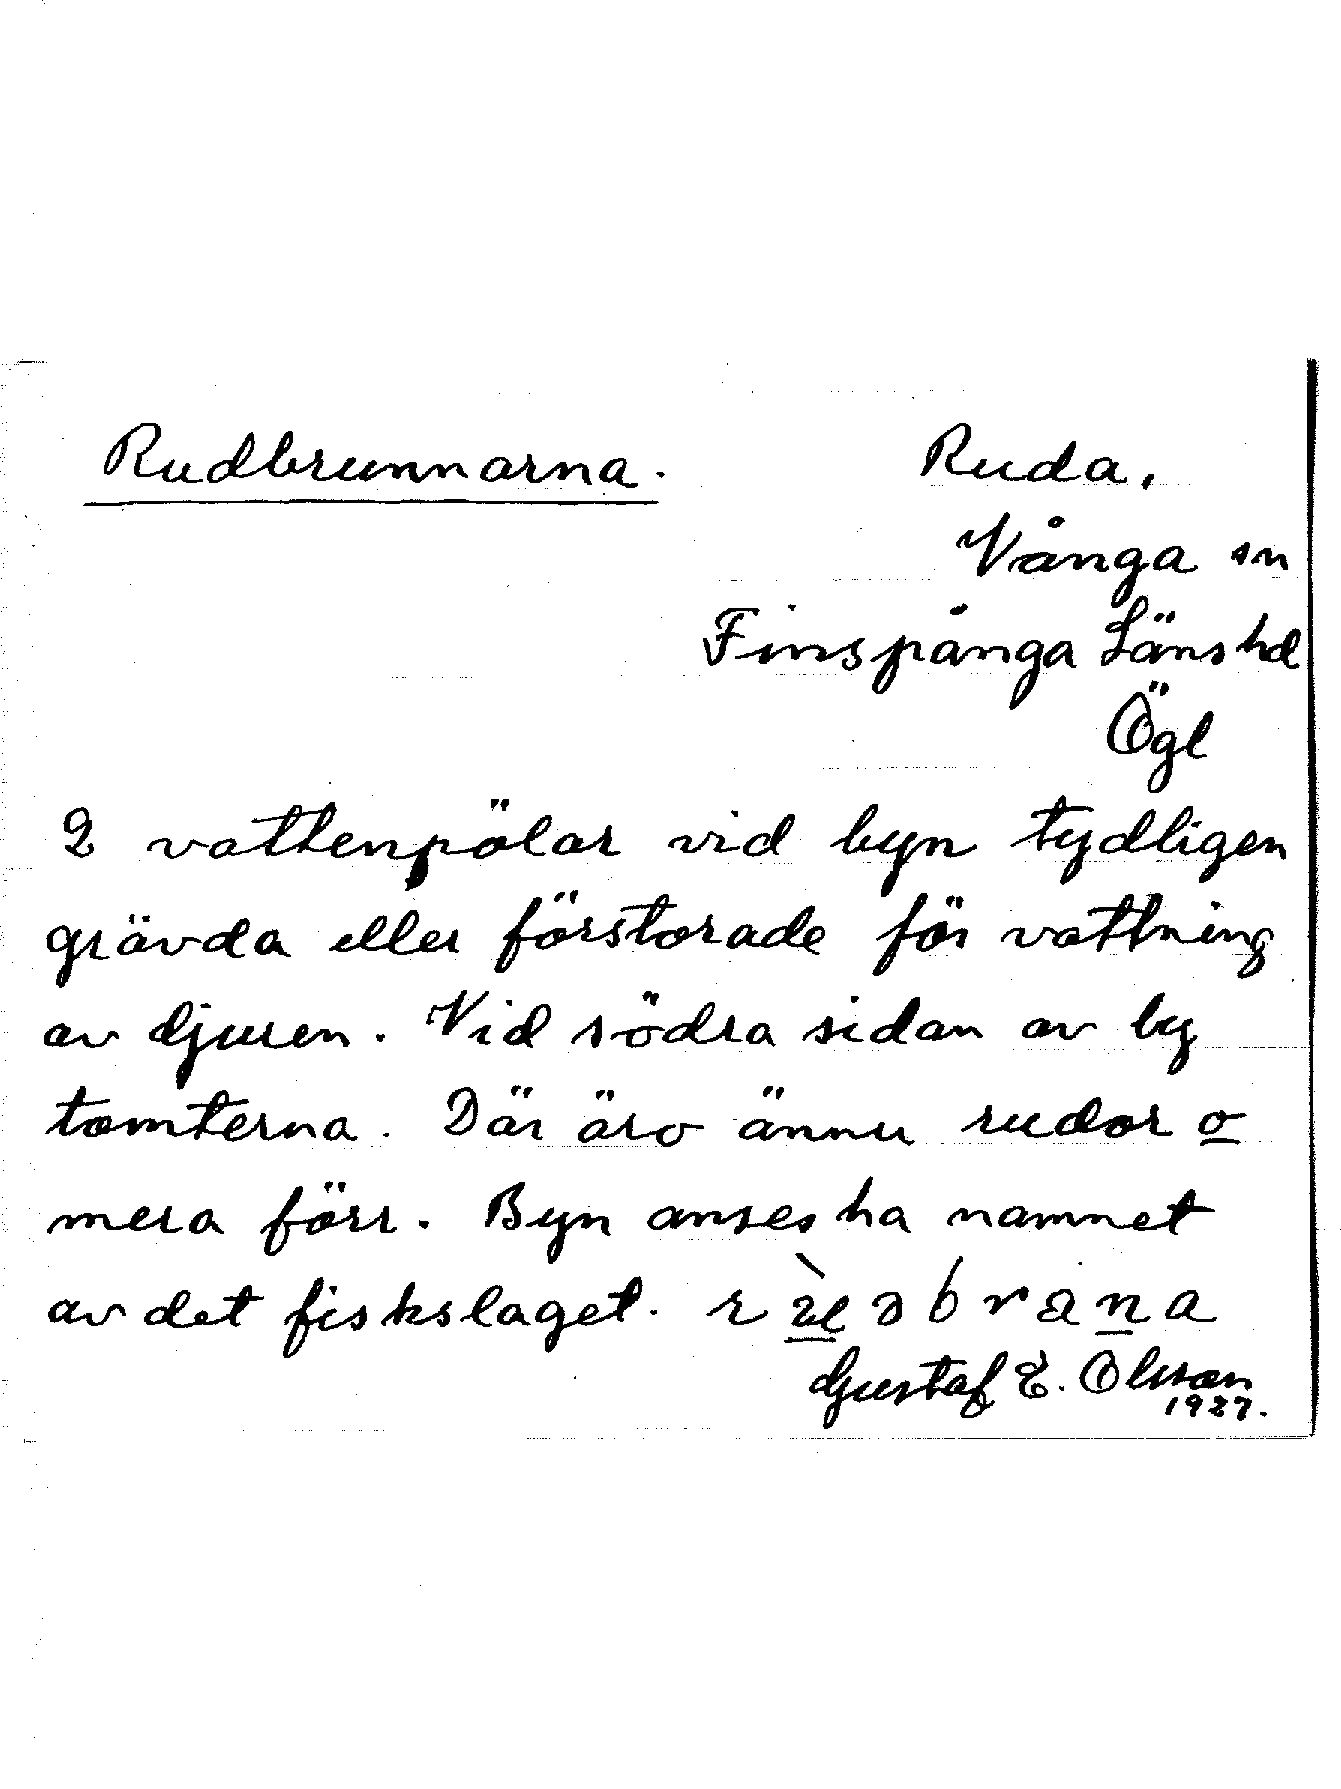 Rudbrunnarna. Ruda,
Vånga sn
Finspånga Länshd
Ögl
2 vattenpölar vid byn tydligen
grävda eller förstorade för vattning
av djuren. Vid södra sidan av by
tomterna. Där äro ännu rudor o
mera förr. Byn anses ha namnet
av det fiskslaget.
Gustaf E. Olsson
1927.